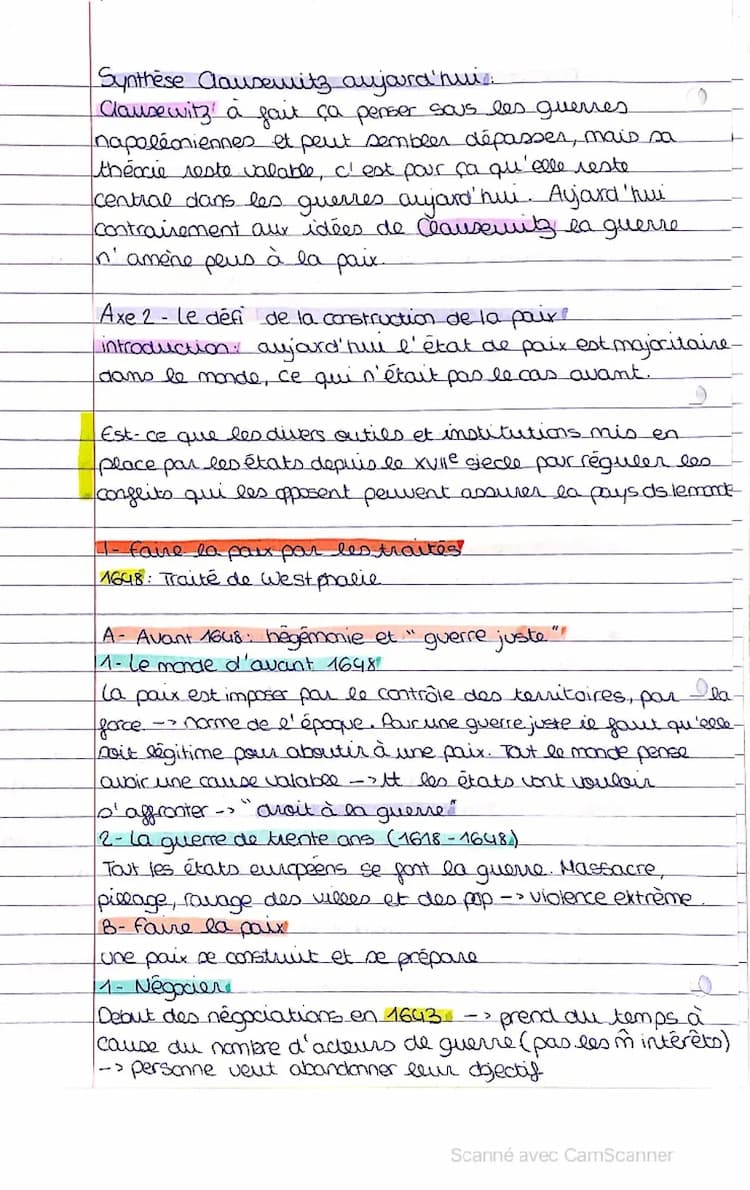 Synthèse Clausewitz aujourd'hui :
Clausewitz à fait ça penser sous les guerres
napoléoniennes et peut sembler dépasser, mais sa
théorie reste valable, c'est pour ça qu'elle reste
central dans les guerres aujourd'hui. Aujourd'hui
contrairement aux idées de Clausewitz la guerre
n'amène plus à la paix.
Axe 2 - Le défi de la construction de la paix
introduction : aujourd'hui l'état de paix est majoritaire
dans le monde, ce qui n'était pas le cas avant.
Est-ce que les divers outils et institutions mis en
place par les états depuis le XVIIe siecle pour réguler les
conflits qui les opposent peuvent assurer la pays ds le monde
I- Faire la paix par les traités
1648 : Traité de Westphalie
A- Avant 1648 : hégémonie et "guerre juste"
1- Le monde d'avant 1648
La paix est imposer par le contrôle des territoires, par la
force -> norme de l'époque. Pour une guerre juste il faut qu'elle
soit légitime pour aboutir à une paix. Tout le monde pense
avoir une cause valable -> tt les états vont vouloir
s'affronter -> "droit à la guerre"
2- La guerre de trente ans (1618 - 1648)
Tout les états européens se font la guerre. Massacre,
pillage, ravage des villes et des pop -> violence extrême.
B- Faire la paix
une paix se construit et se prépare
1- Négocier
Debut des négociations en 1643 -> prend du temps à
cause du nombre d'acteurs de guerre (pas les m̂ intérêts)
-> personne veut abandonner leur objectif
Scanné avec CamScanner